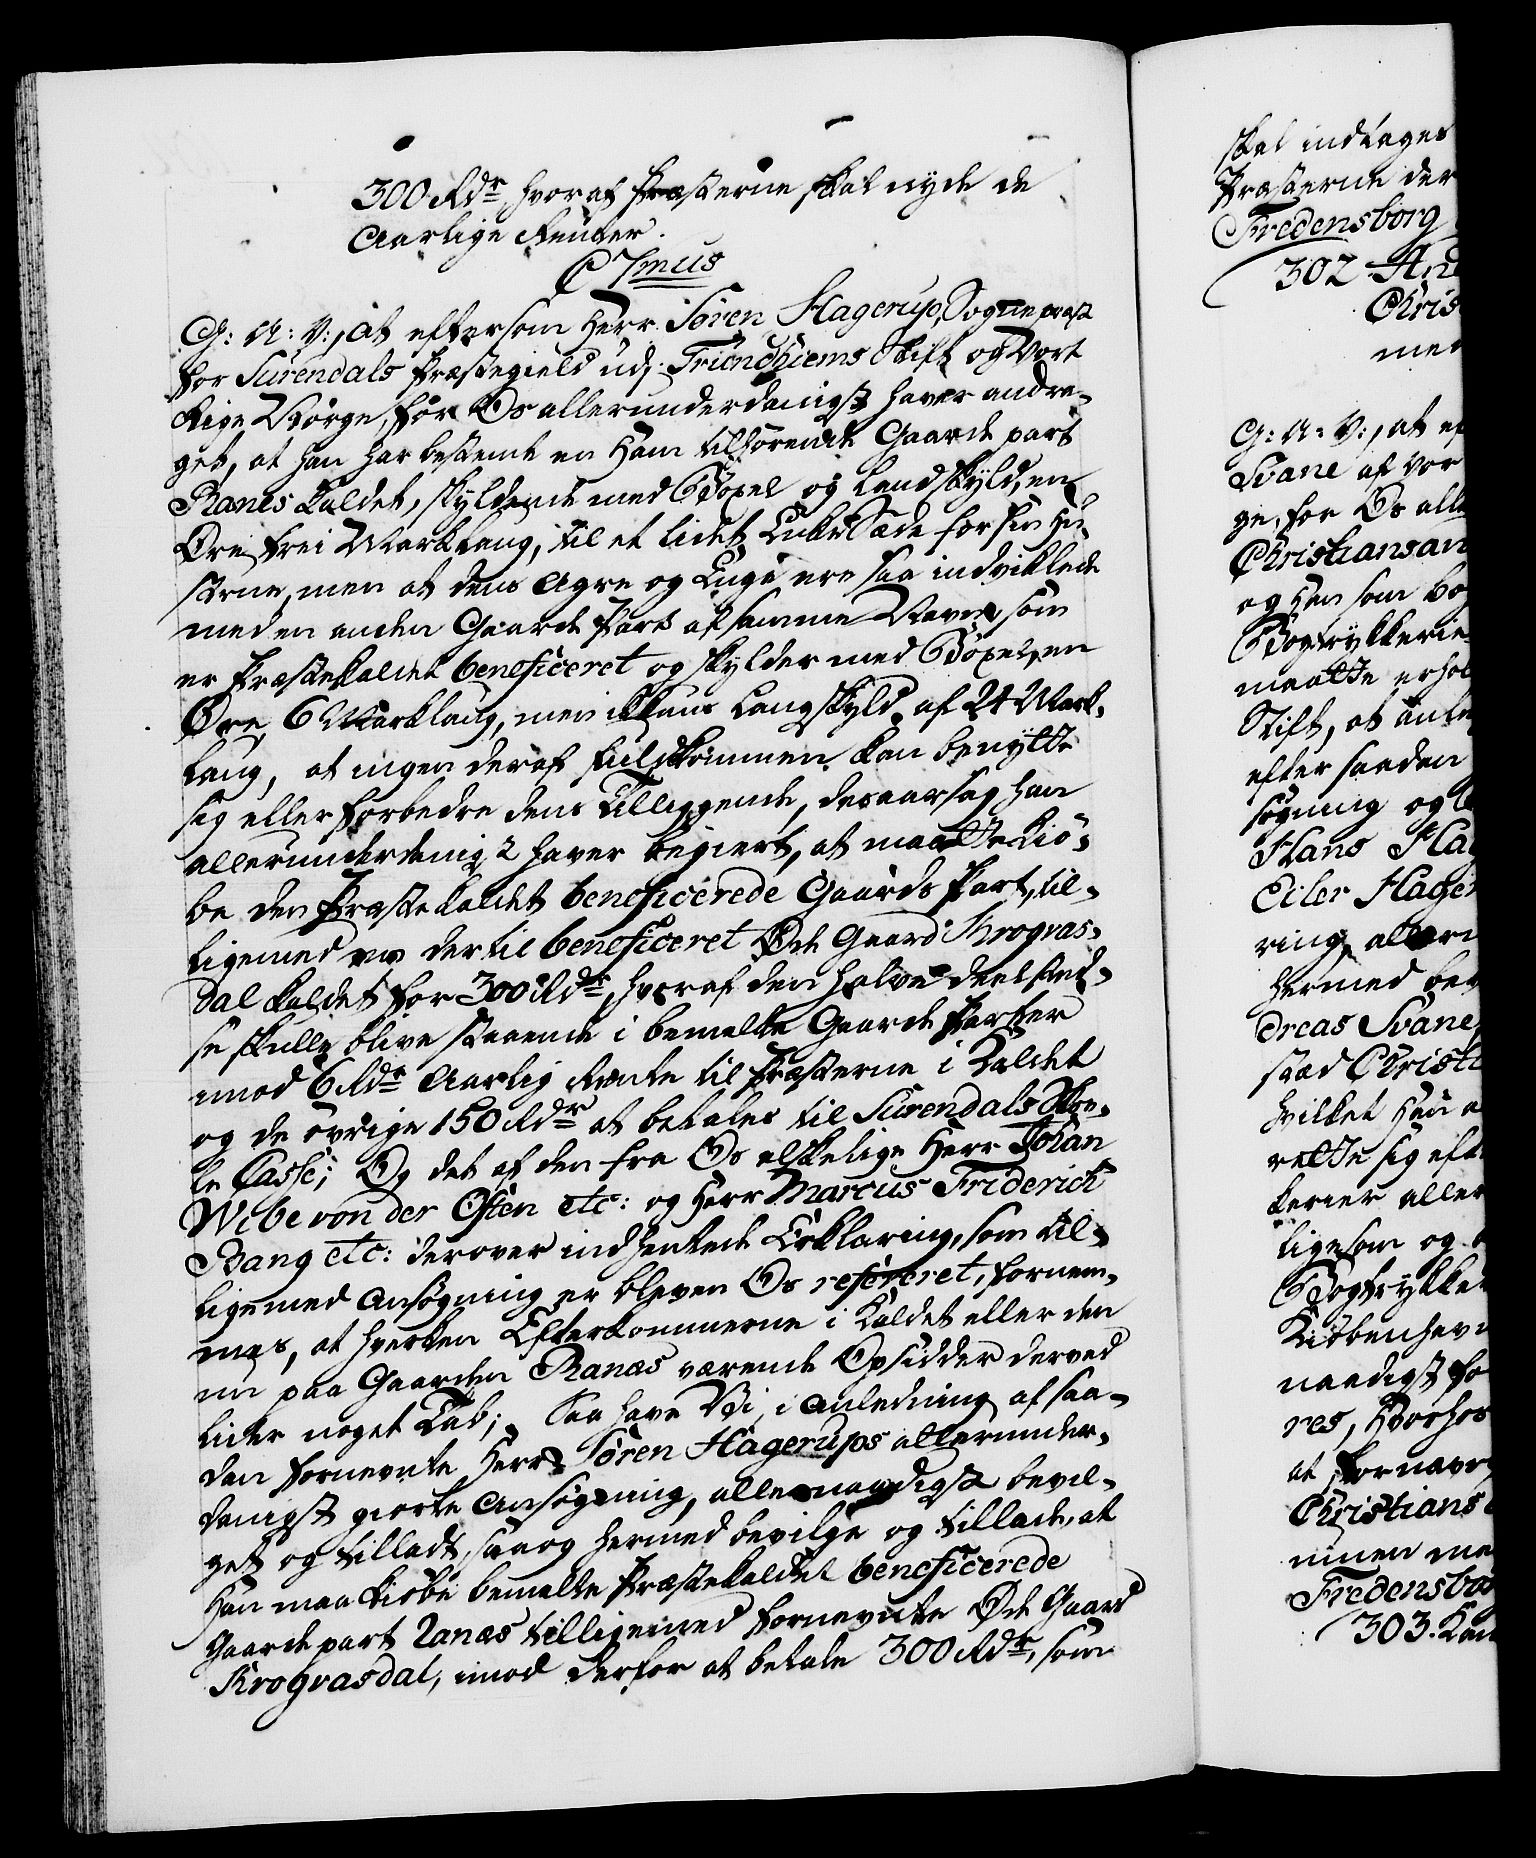 300 Rdr, hvoraf Præsterne skal nyde de
Aarlige Renter.
C 7mus
G: A: V:, at eftersom Herr Søren Hagerup, Sognepræst
for Surendals Præstegield udj Trundhiems Stift og Vort
Rige Norge, for Os allerunderdanigst haver andra-
get, at han har bestemt en Ham tilhørende Gaarde part
Ranes kaldet, skyldende med Böxel og Landskyld, en
Øre trei Marklaug, til et lidet Enke Sæde for sin Hu-
strue, men at dens Agre og Enge ere saa indviklede
med en anden Gaarde Part af samme Navn, som
er Præstekaldet beneficeret og skylder med Böxel, en
Øre 6 Marklaug, men ikkuns Langskyld af 24 Mark-
laug, at ingen deraf fuldkommen kan benytte
sig eller forbedre dens Tilliggende, desaarsag han
allerunderdanigst haver begiert, at maatte kiö-
be den Præstekaldet beneficerede Gaards Part, til-
ligemed en dertil beneficeret Øde Gaard Krogras-
dal kaldet for 300 Rdr, hvoraf den halve deel sid-
se skulle blive staaende i bemelte Gaarde Parter
imod 6 Rdr Aarlig Rente til Præsterne i Kaldet
og de øvrige 150 Rdr at betales til Surendals Sko-
le Casse; Og det af den fra Os elskelige Herr Johan
Wibe von der Osten etc: og Herr Marcus Friderich
Bang etc: derover indhentede Erklæring, som til-
ligemed Ansøgning er bleven Os refereret, fornem-
mes, at hverken Efterkommerne i Kaldet eller den
nu paa Gaarden Ranæs værende Opsidder derved
lider noget Tab; Saa have Vi i Anledning af saa-
dan fornevnte Herr Søren Hagerups allerunder-
danigst giorte Ansøgning, allernaadigst bevil-
get og tilladt, saa og hermed bevilge og tillade, at
Han maa kiøbe bemelte Præstekaldet beneficerede
Gaarde part Ranæs tilligemed fornevnte Øde Gaard
Krograsdal, imod derfor at betale 300 Rdr, som
skal indtages
Præsterne der
Fredensborg
302 And
Chris
men
G: A: V:, at ef
Svane af Vor
ge, for Os alle
Christiansan
og Han som bog
Bogtrykkerie
maatte erhol
Stift, at anle
efter saadan
søgning og
Hans Hag
Eiler Hager
ring, allern
hermed bev
dreas Svane,
stad Christi
hvilket Han a
rette sig eft
kerier aller
ligesom og
Bogtrykker
Kiöbenhavn
naadigst for
res, Hvorhos
at fornævn
Christians
immen me
Fredensbor
303. Kon